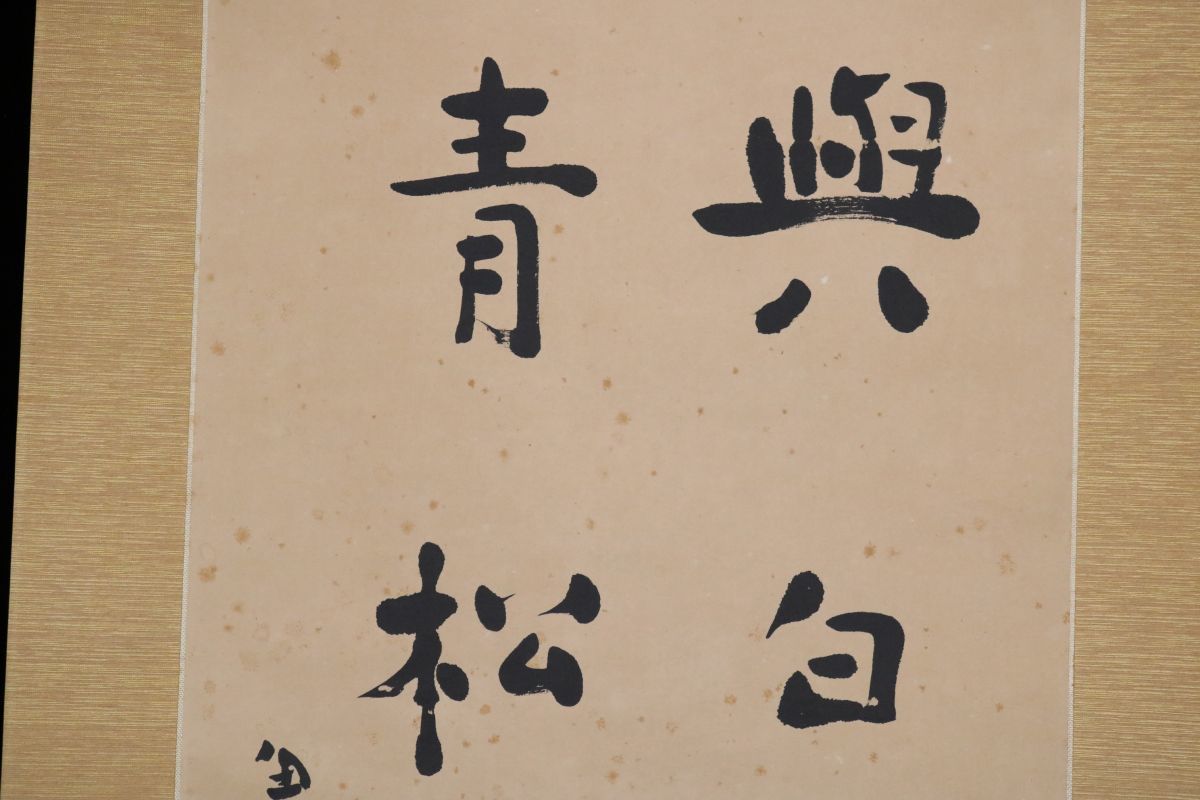 與白
青松